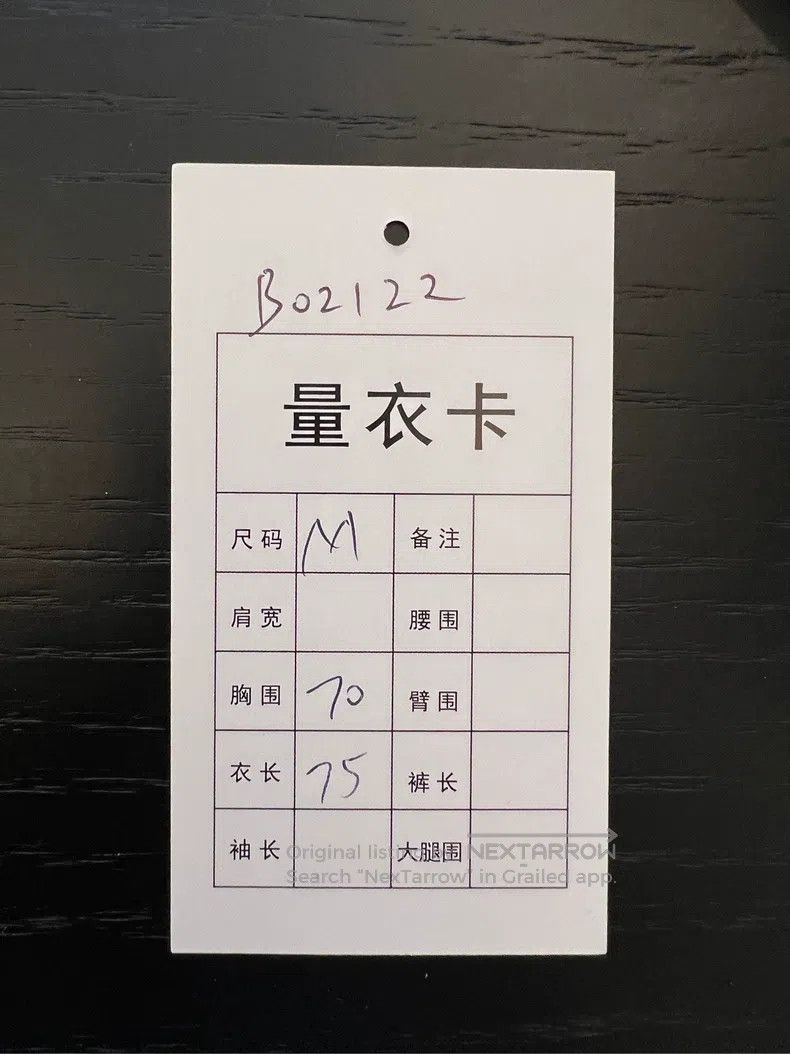 B02122
量衣卡
尺码 M 备注
肩宽 腰围
胸围 70 臂围
衣长 75 裤长
袖长 大腿围
Original listing NEXTARROW
Search "NexTarrow" in Grailed app.